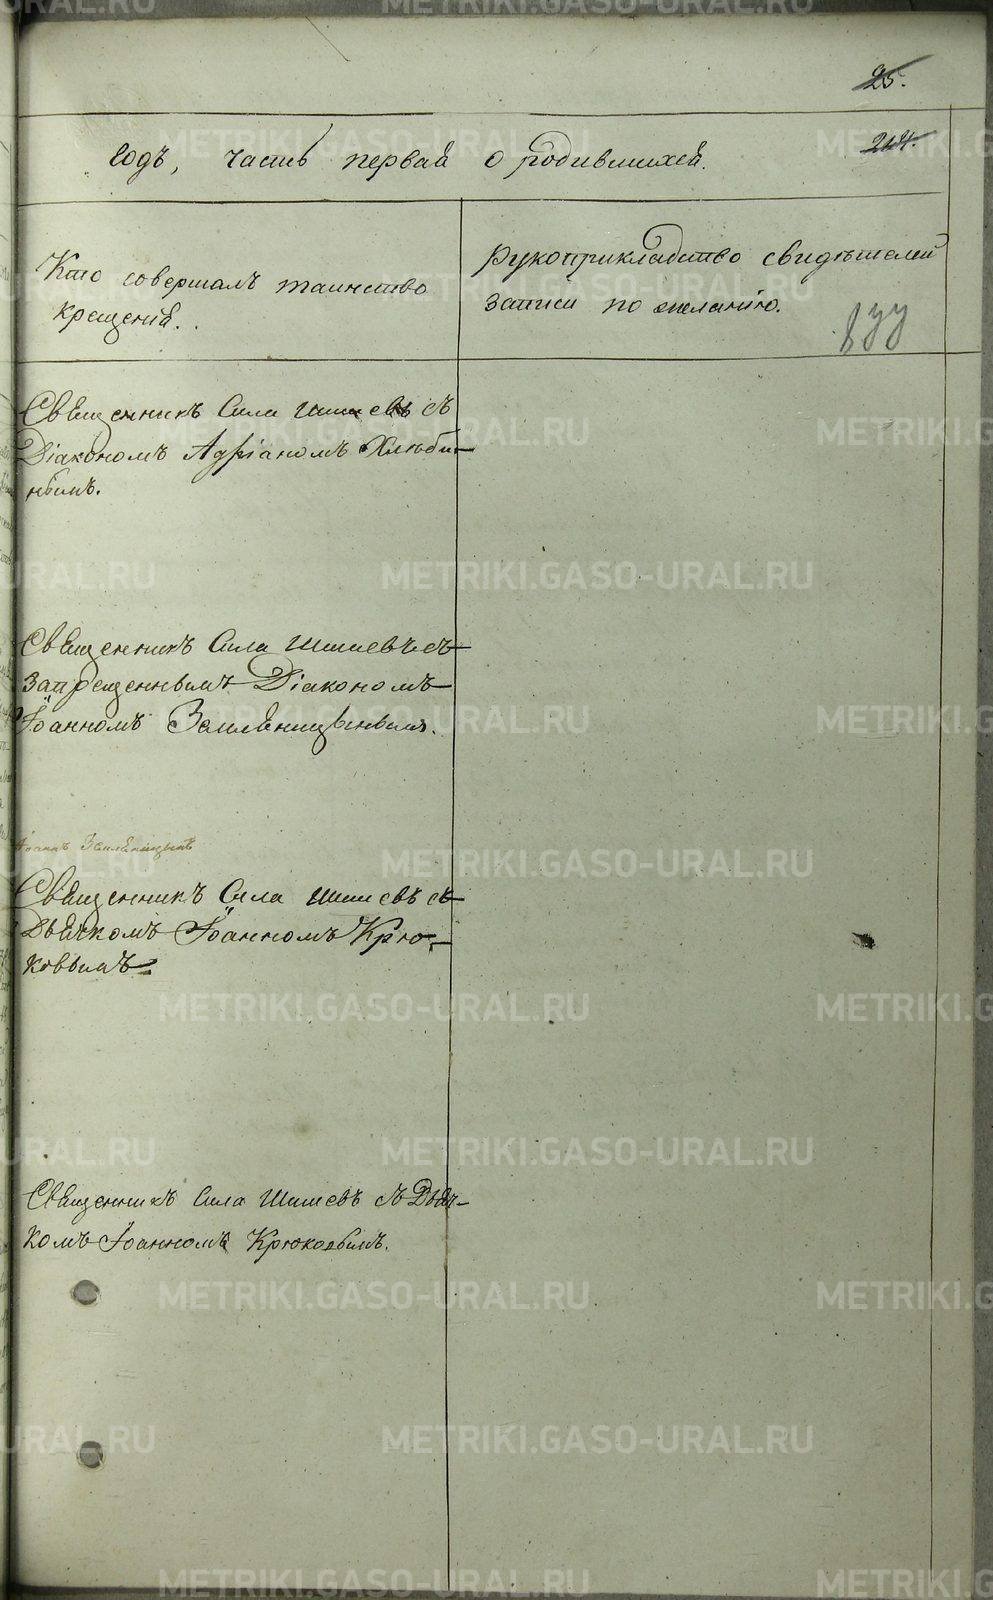 25.
годъ, часть первая о родившихся.
214.
Кто совершалъ таинство
крещенія.
Рукоприкладство свидѣтелей
записи по желанію.
Священникъ Сила Шишевъ съ
Діакономъ Адріаномъ Хлюби-
нымъ.
Священникъ Сила Шишевъ съ
запрещеннымъ Діакономъ
Іоанномъ Земляницынымъ.
Іоаннъ Земляницынъ
Священникъ Сила Шишевъ съ
Дьячкомъ Іоанномъ Крю-
ковымъ.
Священникъ Сила Шишевъ съ Дьяч-
комъ Іоанномъ Крюковымъ.
METRIKI.GASO-URAL.RU